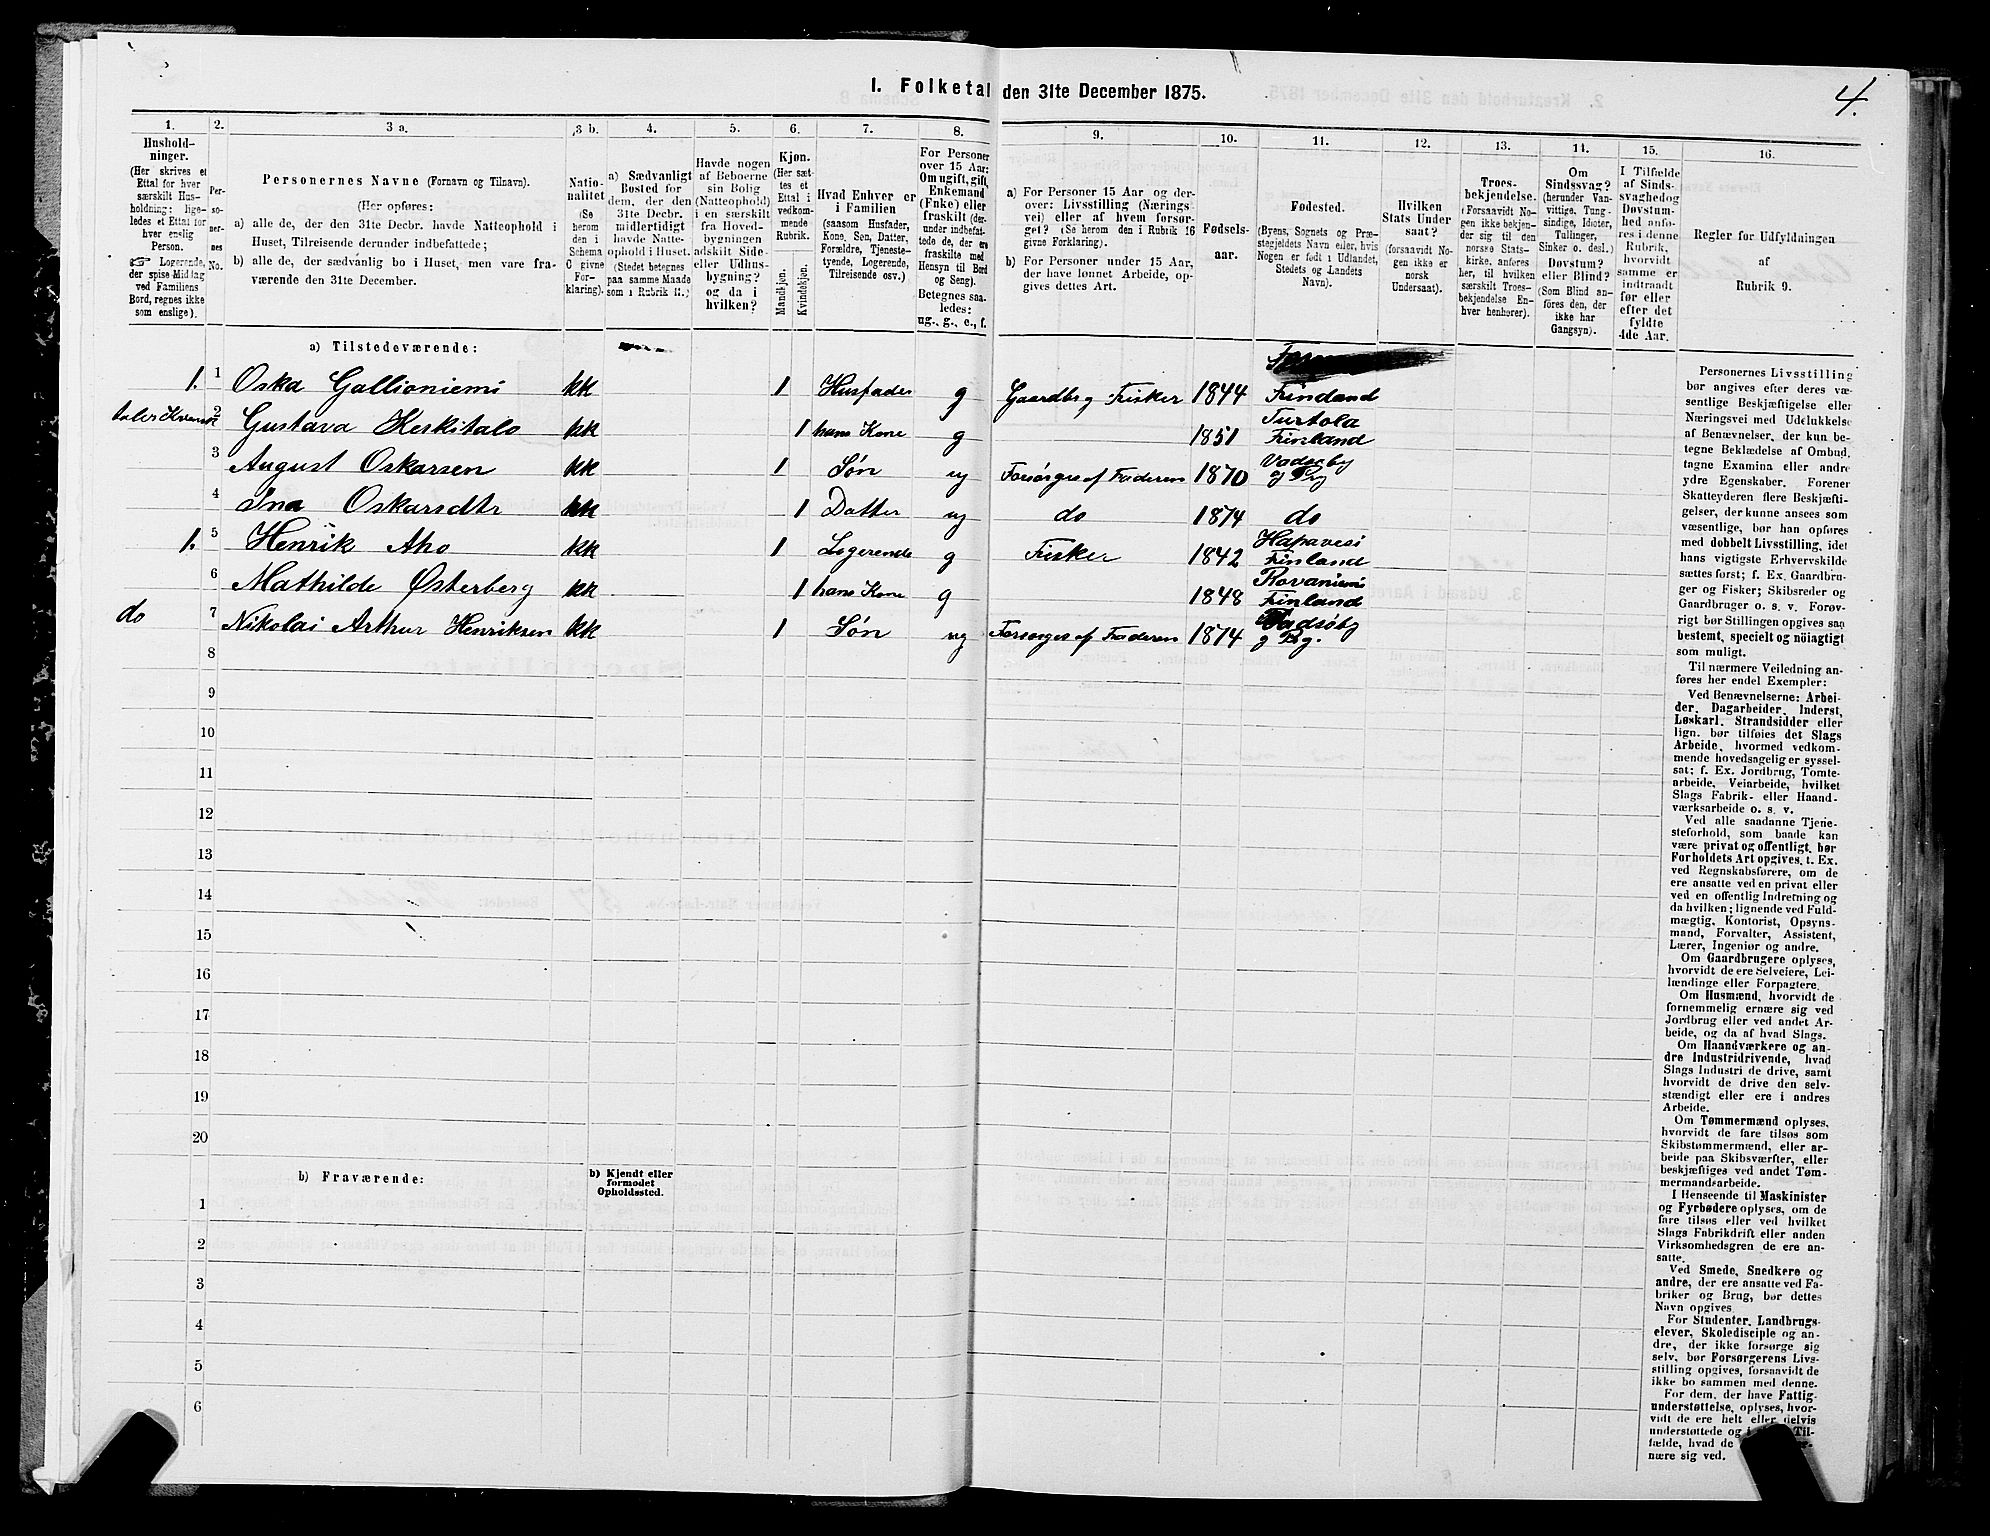 4.
1. Folketal den 31te December 1875.
1. 2. 3 a. 3 b. 4. 5. 6. 7. 8. 9. 10. 11. 12. 13. 14. 15. 16.
Hushold-
ninger.
(Her skrives et
Ettal for hver
særskilt Hus-
holdning; lige-
ledes et Ettal for
hver enslig
Person.
☞ Logerende,
der spise Middag
ved Familiens
Bord, regnes ikke
som enslige).
Per-
so-
ner-
nes
No.
Personernes Navne (Fornavn og Tilnavn).
(Her opføres:
a) alle de, der den 31te Decbr. havde Natteophold i
Huset, Tilreisende derunder indbefattede;
b) alle de, der sædvanlig bo i Huset, men vare fra-
værende den 31te December.
Natio-
nalitet
(Se
herom
den i
Schema
C givne
For-
klaring).
a) Sædvanligt
Bosted for
dem, der den
31te Decbr.
midlertidigt
havde Natte-
ophold i Huset.
(Stedet betegnes
paa samme Maade
som i Rubrik 11.)
Havde nogen
af Beboerne
sin Bolig
(Natteophold)
i en særskilt
fra Hoved-
bygningen
adskilt Side-
eller Udhus-
bygning?
og da i
hvilken?
Kjøn.
(Her sæt-
tes et
Ettal i
vedkom-
mende
Rubrik.
Mandkjøn.
Kvindekjøn.
Hvad Enhver er
i Familien
(saasom Husfader,
Kone, Søn, Datter,
Forældre, Tjeneste-
tyende, Logerende,
Tilreisende osv.)
For Personer
over 15 Aar:
Om ugift, gift,
Enkemand
(Enke) eller
fraskilt (der-
under indbefat-
tede de, der ere
fraskilte med
Hensyn til Bord
og Seng).
Betegnes saa-
ledes:
ug., g., e., f.
a) For Personer 15 Aar og der-
over: Livsstilling (Nærings
vei) eller af hvem forsør-
get? (Se herom den i Rubrik 16
givne Forklaring).
b) For Personer under 15 Aar,
der have lønnet Arbeide, op-
gives dettes Art.
Fødsels-
aar.
Fødested.
(Byens, Sognets og Præ-
stegjeldets Navn eller, hvis
Nogen er født i Udlandet,
Stedets og Landets
Navn).
Hvilken
Stats Under
saat?
(forsaavidt No-
gen ikke er
norsk
Undersaat).
Troes-
bekjendelse.
(Forsaavidt No-
gen ikke bekjen-
der sig til den
norske Stats-
kirke, anføres
her, til hvilken
særskilt Troes-
bekjendelse En-
hver henhører).
Om
Sindssvag?
(herunder Van-
vittige, Tung-
sindige, Idioter,
Tullinger,
Sinker o. desl.)
Døvstum?
eller Blind?
(Som Blind an-
føres den, der
ikke har
Gangsyn).
I Tilfælde
af Sinds-
svaghed og
Døvstum-
hed anfø-
res i denne
Rubrik,
hvorvidt
samme er
indtraadt
før eller
efter det
fyldte
4de Aar.
Regler for Udfyldningen
af
Rubrik 9.
a) Tilstedeværende:
1. 1 Oska Gallioniemi kk 1 Husfader g Gaardbr g Fisker 1844 Finland
taler Kvensk 2 Gustava Heskitalo kk 1 hans Kone g 1851 Turtola Finland
3 August Oskarsen kk 1 Søn ug Forsørges af Faderen 1870 Vadsøby g Prg
4 Ina Oskarsdtr kk 1 Datter ug do 1874 do
1. 5 Henrik Aho kk 1 Logerende g Fisker 1842 Hapavesi Finland
6 Mathilde Østerberg kk 1 hans Kone g 1848 Rovaniemi Finland
do 7 Nikolai Arthur Henriksen kk 1 Søn ug Forsørges af Faderen 1874 Vadsøby g Prg.
8
9
10
11
12
13
14
15
16
17
18
19
20
b) Fraværende:
b) Kjendt eller
formodet
Opholdssted.
1
2
3
4
5
6
Personernes Livsstilling
bør angives efter deres væ-
sentlige Beskjæftigelse eller
Næringsvei med Udelukkelse
af Benævnelser, der kun be-
tegne Beklædelse af Ombud,
tagne Examina eller andre
ydre Egenskaber. Forener
Skatteyderen flere Beskjæfti-
gelser, der kunne ansees som
væsentlige, bør han opføres
med dobbelt Livsstilling, idet
hans vigtigste Erhvervskilde
sættes først; f. Ex. Gaardbru-
ger og Fisker; Skibsreder og
Gaardbruger o. s. v. Forøv-
rigt bør Stillingen opgives saa
bestemt, specielt og nöiagtigt
som muligt.
Til nærmere Veiledning an-
føres her endel Exempler:
Ved Benævnelserne: Arbei-
der, Dagarbeider, Inderst,
Løskarl, Strandsidder eller
lign. bør tilføies det Slags
Arbeide, hvormed vedkom-
mende hovedsagelig er syssel-
sat; f. Ex. Jordbrug, Tomte-
arbeide, Veiarbeide, hvilket
Slags Fabrik- eller Haand-
værksarbeide o. s. v.
Ved alle saadanne Tjene-
steforhold, som baade kan
være privat og offentligt, bør
Forholdets Art opgives, t. Ex.
ved Regnskabsførere, om de
ere ansatte ved en privat eller
ved en offentlig Indretning og
da hvilken; lignende ved Fuld-
mægtig, Kontorist, Opsyns-
mand, Forvalter, Assistent,
Lærer, Ingeniør og andre.
Om Gaardbrugere oplyses,
hvorvidt de ere Selveiere, Lei-
lændinge eller Forpagtere.
Om Husmænd, hvorvidt de
fornemmelig ernære sig ved
Jordbrug eller ved andet Ar-
beide, og da af hvad Slags.
Om Haandværkere og an-
dre Industridrivende, hvad
Slags Industri de drive, samt
hvorvidt de drive den selv-
stændigt eller ere i andres
Arbeide.
Om Tømmermænd oplyses,
hvorvidt de fare tilsøs som
Skibstømmermænd, eller ar-
beide paa Skibsværfter, eller
beskjæftiges ved andet Tøm-
mermandsarbeide.
I Henseende til Maskinister
og Fyrbødere oplyses, om de
fare tilsøs eller ved hvilket
Slags Fabrikdrift eller anden
Virksomhedsgren de ere an-
satte.
Ved Smede, Snedkere og
andre, der ere ansatte ved Fa-
briker og Brug, bør dettes
Navn opgives.
For Studenter, Landbrugs-
elever, Skoledisciple og an-
dre, der ikke forsørge sig
selv, bør Forsørgerens Livs-
stilling opgives, forsaavidt de
ikke bo sammen med denne.
For dem, der have Fattig-
understøttelse, oplyses, hvor-
vidt de ere helt eller delvis
understøttede og i Til-
fælde, hvad de
nære sig ved.